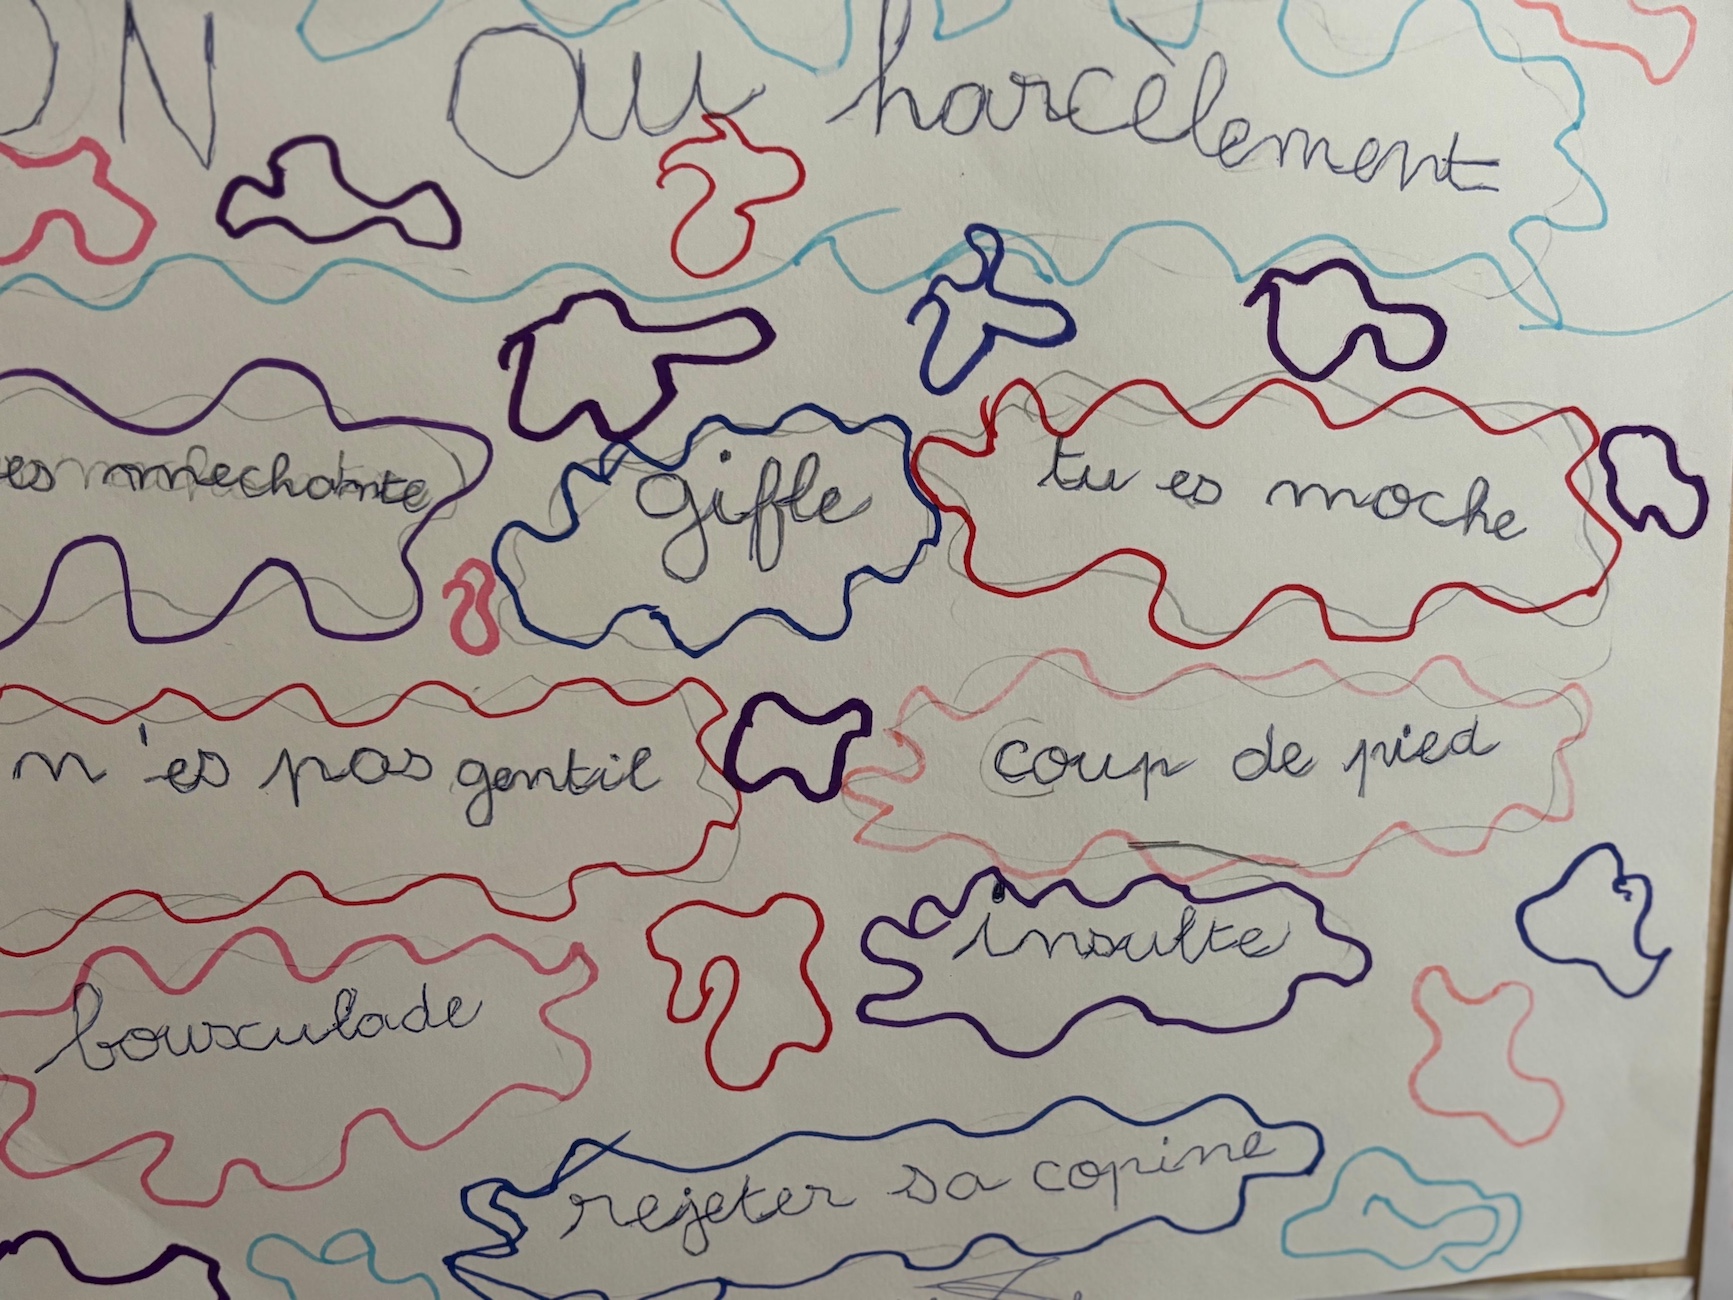 ON au harcèlement
es mechante
gifle
tu es moche
n'es pas gentil
coup de pied
insulte
bousculade
rejeter sa copine